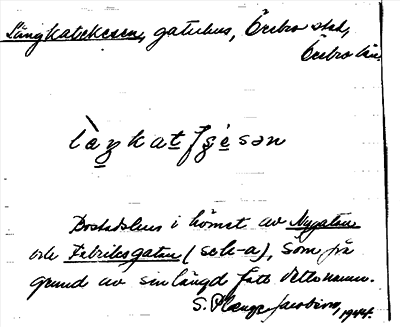 Långkatekesen, gatuhus, Örebro stad,
Örebro län.
Bostadshus i hörnet av Nygatan
och Fabriksgatan (sch-a), som på
grund av sin längd fått detta namn.
S. Plenge-Jacobson, 1944.